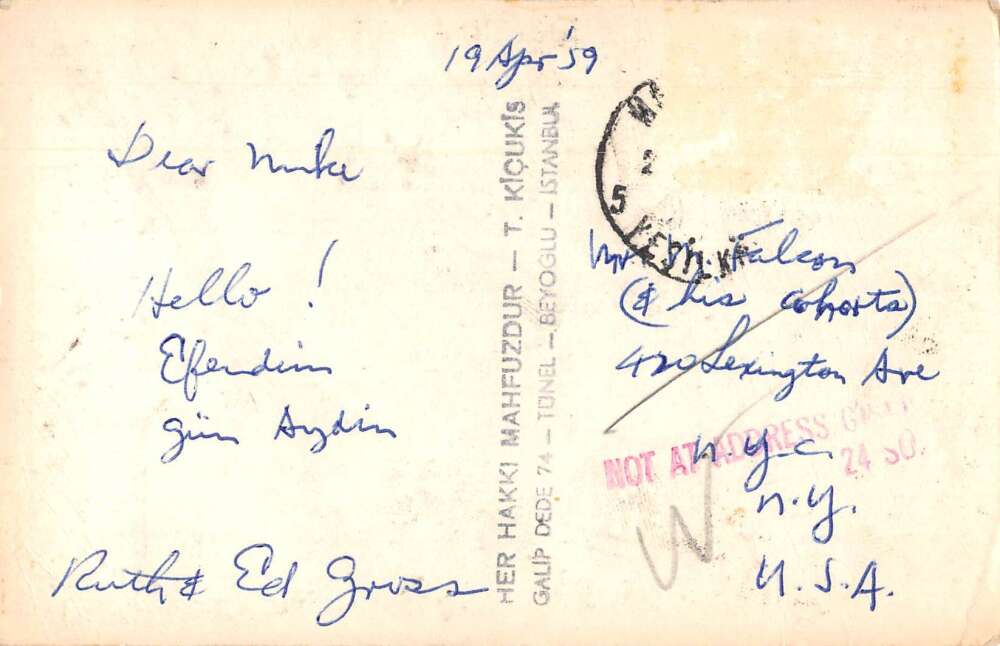 19 Apr '59
Dear Mike
Hello !
Efendim
gün Aydin
Ruth & Ed Gross
HER HAKKI MAHFUZDUR — T. KİÇUKİS
GALIP DEDE 74 — TÜNEL — BEYOGLU — İSTANBUL
2
5 YEŞİLKÖ
Mr. M. Falcon
(& his cohorts)
420 Lexington Ave
N.Y.C.
N.Y.
U.S.A.
NOT AT ADDRESS
24 SO.
W